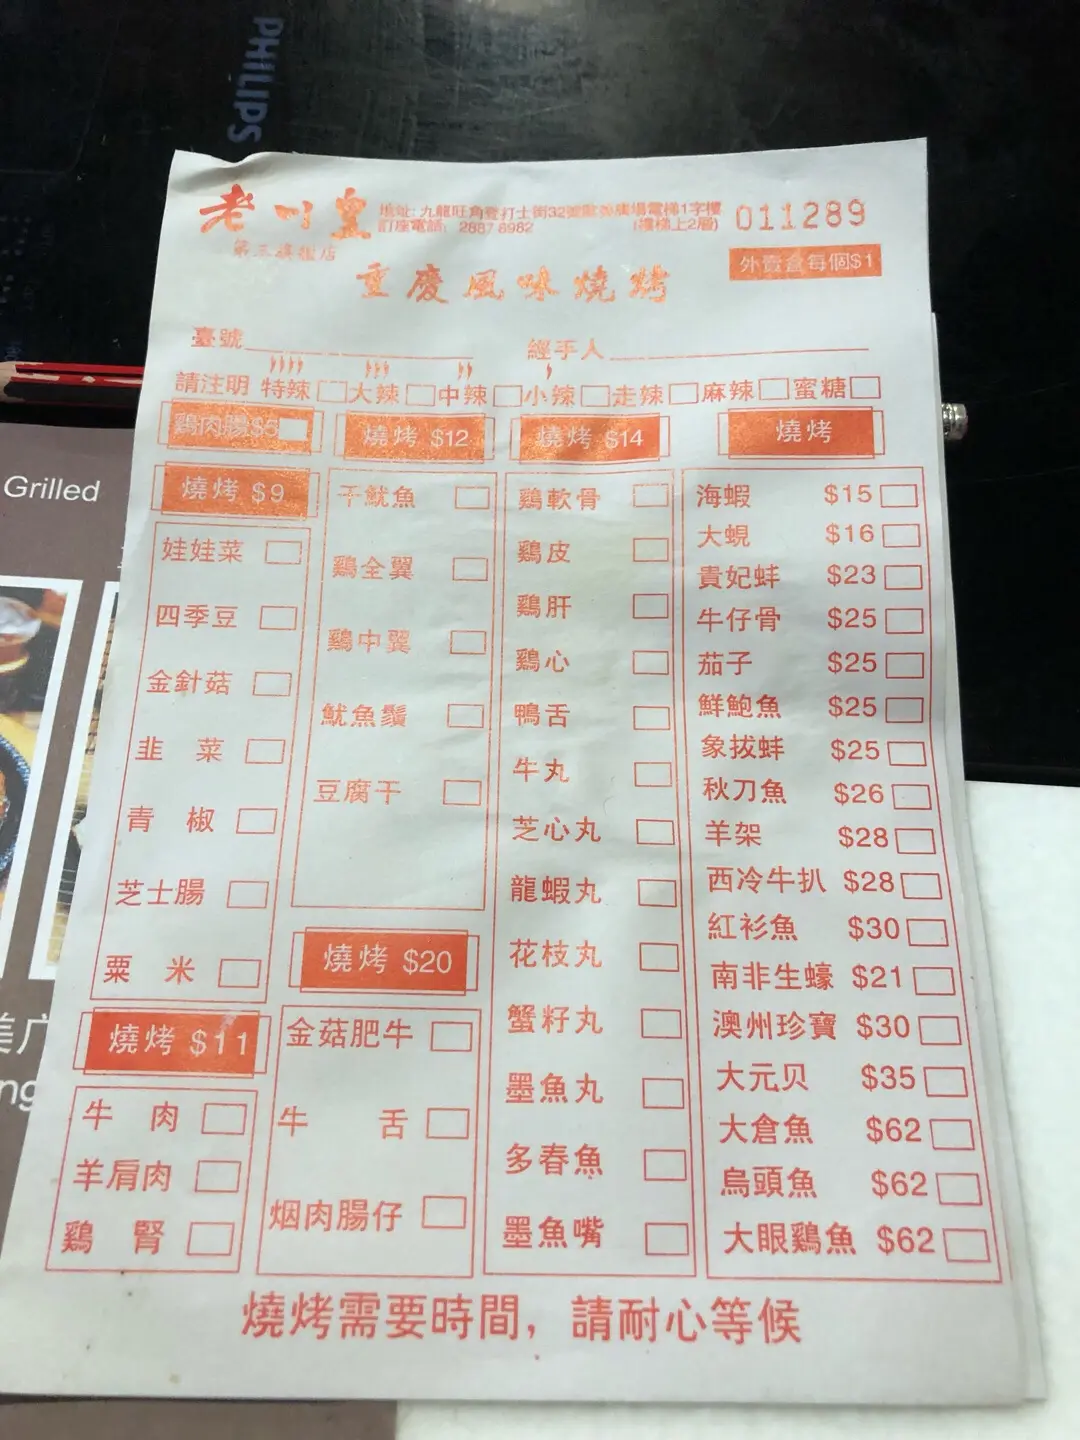 PHILIPS
老川皇
第三旗艦店
地址: 九龍旺角登打士街32號 廣場電梯1字樓
訂座電話: 2887 8982 (樓梯上2層)
011289
外賣盒每個$1
重慶風味燒烤
臺號 經手人
請注明 特辣 大辣 中辣 小辣 走辣 麻辣 蜜糖
鷄肉腸$5
燒烤 $9
娃娃菜
四季豆
金針菇
韭菜
青椒
芝士腸
粟米
燒烤 $11
牛肉
羊肩肉
鷄腎
燒烤 $12
干魷魚
鷄全翼
鷄中翼
魷魚鬚
豆腐干
燒烤 $20
金菇肥牛
牛舌
烟肉腸仔
燒烤 $14
鷄軟骨
鷄皮
鷄肝
鷄心
鴨舌
牛丸
芝心丸
龍蝦丸
花枝丸
蟹籽丸
墨魚丸
多春魚
墨魚嘴
燒烤
海蝦 $15
大蜆 $16
貴妃蚌 $23
牛仔骨 $25
茄子 $25
鮮鮑魚 $25
象拔蚌 $25
秋刀魚 $26
羊架 $28
西冷牛扒 $28
紅衫魚 $30
南非生蠔 $21
澳州珍寶 $30
大元贝 $35
大倉魚 $62
烏頭魚 $62
大眼鷄魚 $62
燒烤需要時間，請耐心等候
Grilled
美广
ng